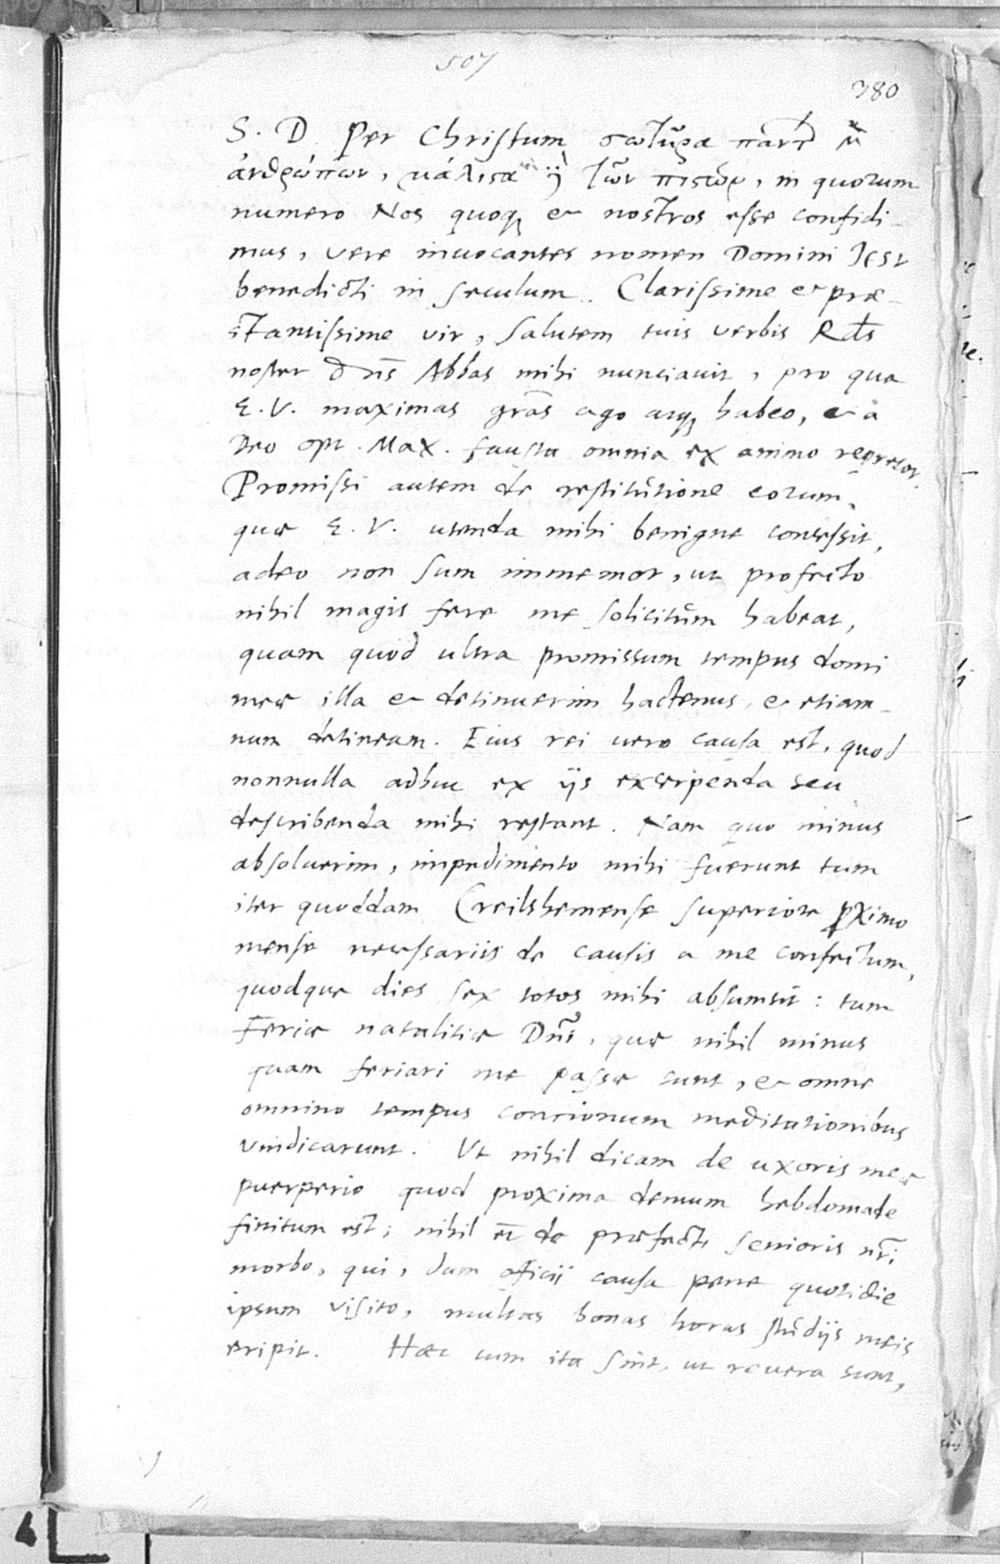 507
280
S. D. Per Christum σωτῆρα παντ τ
ἀνθρώπων, μάλιστα δὲ τῶν πιστῶν, in quorum
numero Nos quoq; et nostros esse confidi-
mus, vere invocantes nomen Domini Jesu
benedicti in seculum. Clarissime et præ-
stantissime vir, salutem tuis verbis Rds
noster dns Abbas mihi nunciavit, pro qua
E. V. maximas gras ago atq; habeo, et a
Deo opt. Max. fausta omnia ex animo reprecor.
Promissi autem de restitutione eorum,
quæ E. V. utenda mihi benigne concessit,
adeo non sum immemor, ut profecto
nihil magis fere me solicitum habeat,
quam quod ultra promissum tempus domi
meæ illa et detinuerim hactenus, et etiam-
num detineam. Eius rei vero causa est, quod
nonnulla adhuc ex ijs excerpenda seu
describenda mihi restant. Nam quo minus
absolverim, impedimento mihi fuerunt tum
iter quoddam Creilshemense superiore pximo
mense necessariis de causis a me confectum,
quodque dies sex totos mihi absumsit: tum
Feriæ natalitiæ Dni, quæ nihil minus
quam feriari me passæ sunt, et omne
omnino tempus concionum meditationibus
vindicarunt. Ut nihil dicam de uxoris meæ
puerperio quod proxima demum hebdomade
finitum est; nihil et de præfecti senioris nri
morbo, qui, dum officii causa pene quotidie
ipsum visito, multas bonas horas studijs meis
eripit. Hæc cum ita sint, ut revera sunt,